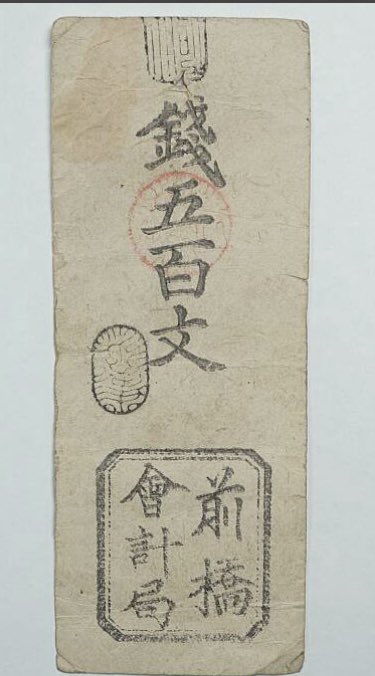 錢五百文
前橋
會計局